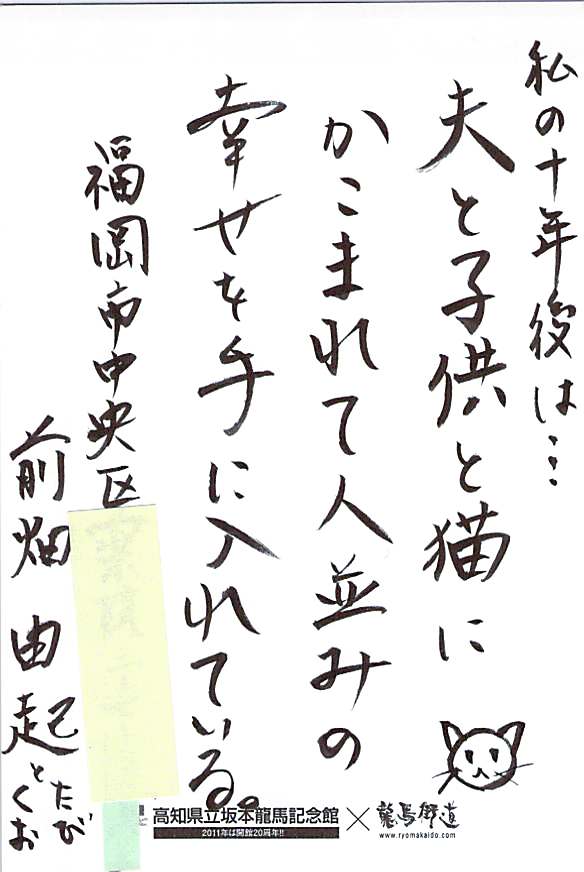 私の十年後は…
夫と子供と猫に
かこまれて人並みの
幸せを手に入れている。
福岡市中央区
前畑 由起
とくお
たび
高知県立坂本龍馬記念館 × 龍馬街道
2011年は開館20周年!!
www.ryomakaido.com